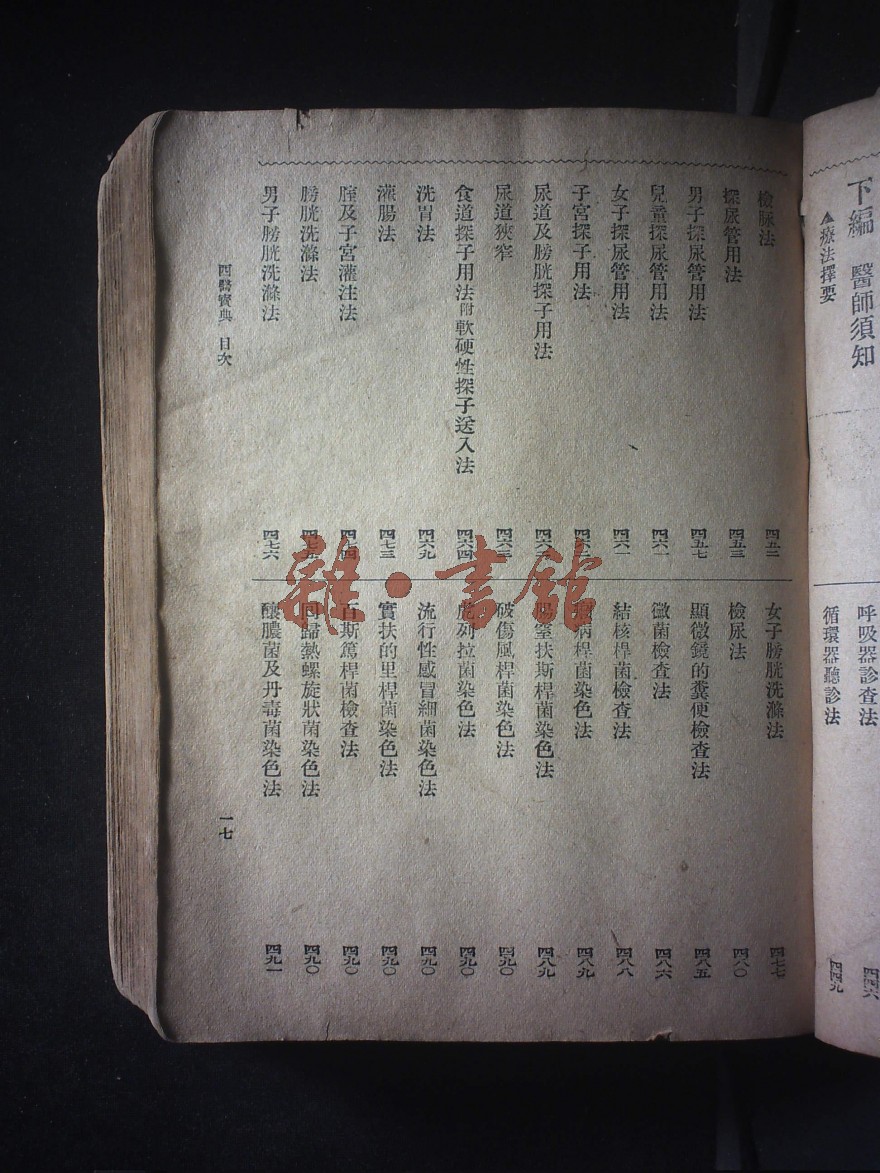 下編 醫師須知
▲療法擇要
呼吸器診查法 四四六
循環器聽診法 四四九
檢脈法 四五二
探尿管用法 四五三
男子探尿管用法 四五七
兒童探尿管用法 四六一
女子探尿管用法 四六一
子宮探子用法
尿道及膀胱探子用法
尿道狹窄 四六三
食道探子用法附軟硬性探子送入法 四六四
洗胃法 四六九
灌腸法 四七三
腟及子宮灌注法 四七四
膀胱洗滌法 四七五
男子膀胱洗滌法 四七六
女子膀胱洗滌法 四七七
檢尿法 四八〇
顯微鏡的糞便檢查法 四八五
黴菌檢查法 四八六
結核桿菌檢查法 四八八
病桿菌染色法 四八九
窒扶斯桿菌染色法 四八九
破傷風桿菌染色法 四九〇
虎列拉菌染色法 四九〇
流行性感冒細菌染色法 四九〇
實扶的里桿菌染色法 四九〇
百斯篤桿菌檢查法 四九〇
回歸熱螺旋狀菌染色法 四九〇
釀膿菌及丹毒菌染色法 四九一
西醫寶典 目次
一七
雜·書館